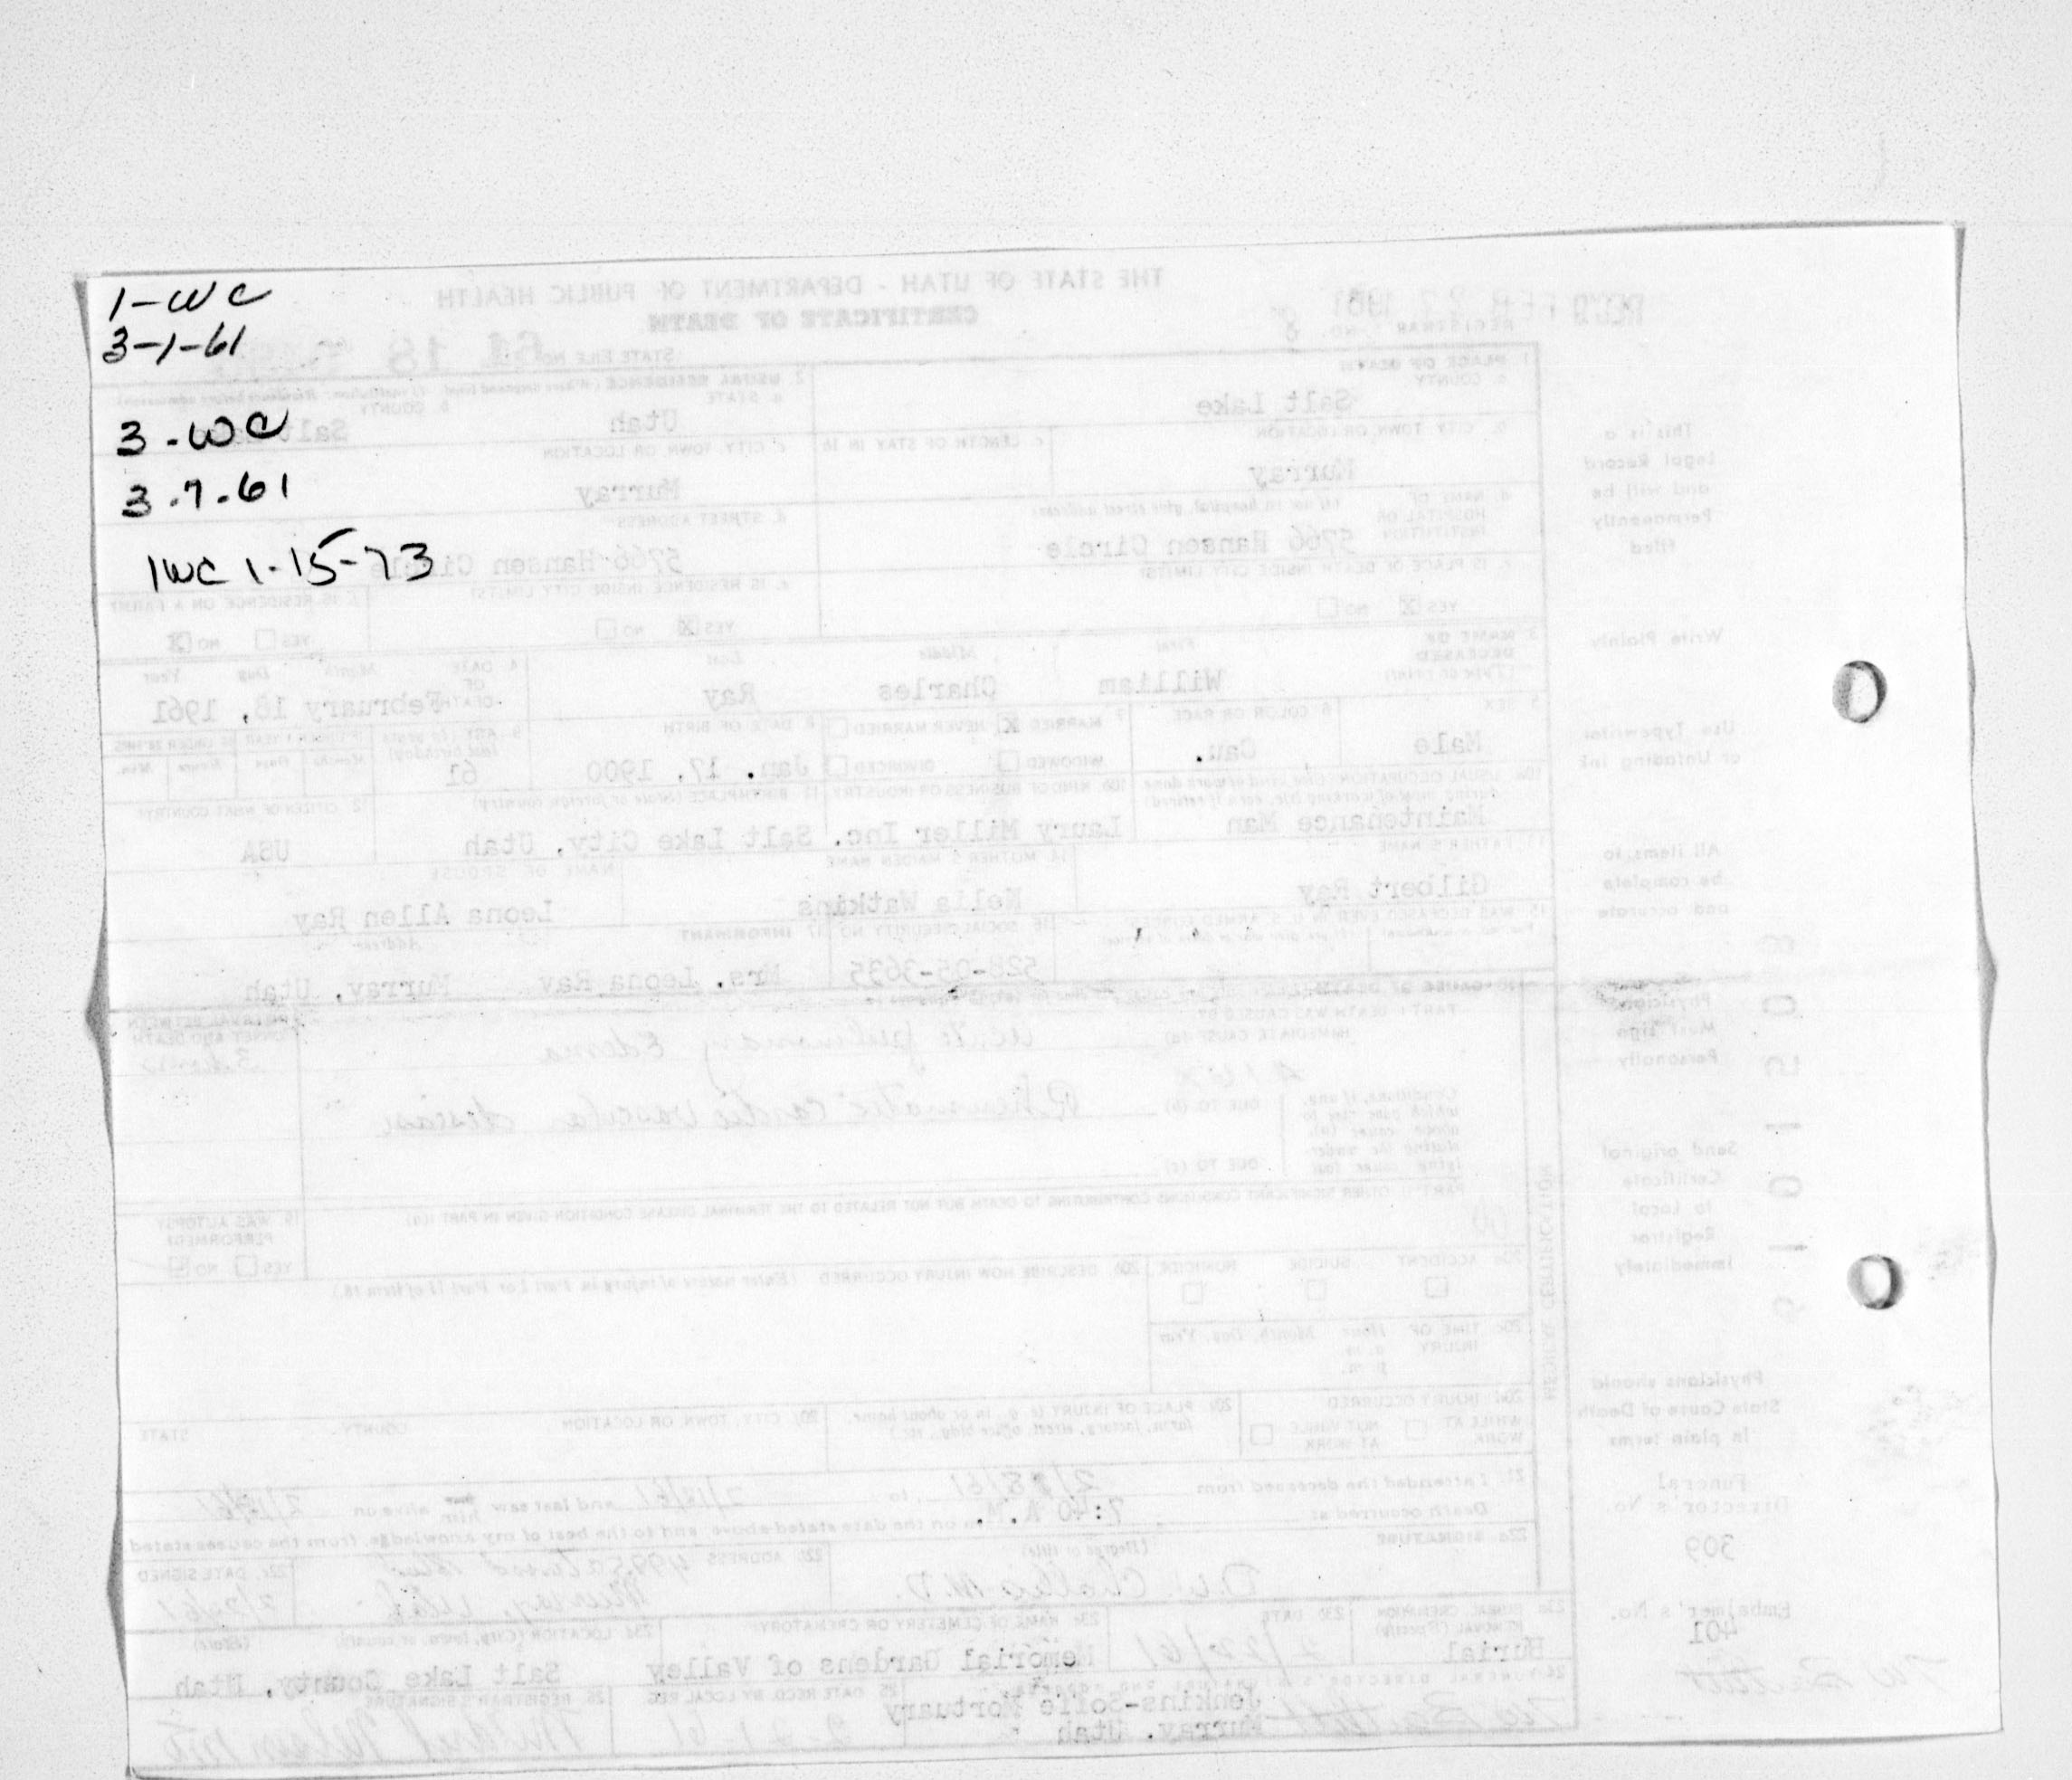 1-WC
3-1-61
3-WC
3.7.61
1WC 1-15-73
THE STATE OF UTAH - DEPARTMENT OF PUBLIC HEALTH
CERTIFICATE OF DEATH
REC'D FEB 1961
REGISTRAR'S NO. 8
STATE FILE NO. 61 18
1. PLACE OF DEATH
a. COUNTY
Salt Lake
2. USUAL RESIDENCE (Where deceased lived. If institution: Residence before admission)
a. STATE
Utah
b. COUNTY
Salt Lake
b. CITY, TOWN, OR LOCATION
Murray
c. LENGTH OF STAY IN 1b
c. CITY, TOWN, OR LOCATION
Murray
d. NAME OF HOSPITAL OR INSTITUTION (If not in hospital, give street address)
5766 Hansen Circle
d. STREET ADDRESS
5766 Hansen Circle
e. IS PLACE OF DEATH INSIDE CITY LIMITS?
YES X NO
e. IS RESIDENCE INSIDE CITY LIMITS?
YES X NO
f. IS RESIDENCE ON A FARM?
YES NO X
3. NAME OF DECEASED (Type or print)
First Middle Last
William Charles Ray
4. DATE OF DEATH Month Day Year
February 18, 1961
5. SEX
Male
6. COLOR OR RACE
Cau.
7. MARRIED X NEVER MARRIED
WIDOWED DIVORCED
8. DATE OF BIRTH
Jan. 17, 1900
9. AGE (In years last birthday)
61
IF UNDER 1 YEAR IF UNDER 24 HRS.
Months Days Hours Min.
10a. USUAL OCCUPATION (Give kind of work done during most of working life, even if retired)
Maintenance Man
10b. KIND OF BUSINESS OR INDUSTRY
Laury Miller Inc.
11. BIRTHPLACE (State or foreign country)
Salt Lake City, Utah
12. CITIZEN OF WHAT COUNTRY?
USA
13. FATHER'S NAME
Gilbert Ray
14. MOTHER'S MAIDEN NAME
Nelia Watkins
NAME OF SPOUSE
Leona Allen Ray
15. WAS DECEASED EVER IN U. S. ARMED FORCES?
16. SOCIAL SECURITY NO.
528-05-3635
17. INFORMANT Address
Mrs. Leona Ray Murray, Utah
18. CAUSE OF DEATH
PART I. DEATH WAS CAUSED BY:
IMMEDIATE CAUSE (a)
Acute pulmonary Edema
INTERVAL BETWEEN ONSET AND DEATH
Conditions, if any, which gave rise to above cause (a), stating the underlying cause last
DUE TO (b)
Rheumatic cardio vascular disease
DUE TO (c)
PART II. OTHER SIGNIFICANT CONDITIONS CONTRIBUTING TO DEATH BUT NOT RELATED TO THE TERMINAL DISEASE CONDITION GIVEN IN PART I(a)
19. WAS AUTOPSY PERFORMED?
YES NO
20a. ACCIDENT SUICIDE HOMICIDE
20b. DESCRIBE HOW INJURY OCCURRED (Enter nature of injury in Part I or Part II of item 18.)
20c. TIME OF INJURY Hour Month, Day, Year
a. m.
p. m.
20d. INJURY OCCURRED
WHILE AT WORK NOT WHILE AT WORK
20e. PLACE OF INJURY (e. g., in or about home, farm, factory, street, office bldg., etc.)
20f. CITY, TOWN, OR LOCATION COUNTY STATE
21. I attended the deceased from to and last saw him alive on
Death occurred at 7:40 A.M. on the date stated above, and to the best of my knowledge, from the causes stated.
22a. SIGNATURE (Degree or title)
M.D.
22b. ADDRESS
Murray, Utah
22c. DATE SIGNED
23a. BURIAL, CREMATION, REMOVAL (Specify)
Burial
23b. DATE
2/22/61
23c. NAME OF CEMETERY OR CREMATORY
Memorial Gardens of Valley
23d. LOCATION (City, town, or county) (State)
Salt Lake County, Utah
24. FUNERAL DIRECTOR'S SIGNATURE AND ADDRESS
Jenkins-Soffe Mortuary
Murray, Utah
25. DATE RECD. BY LOCAL REG.
2-21-61
26. REGISTRAR'S SIGNATURE
MEDICAL CERTIFICATION
This is a
Legal Record
and will be
Permanently
filed
Write Plainly
Use Typewriter
or Unfading ink
All items to
be complete
and accurate
Physicians
Must Sign
Personally
Send original
Certificate
to Local
Registrar
Immediately
Physicians should
State Cause of Death
in plain terms
Funeral
Director's No.
309
Embalmer's No.
401